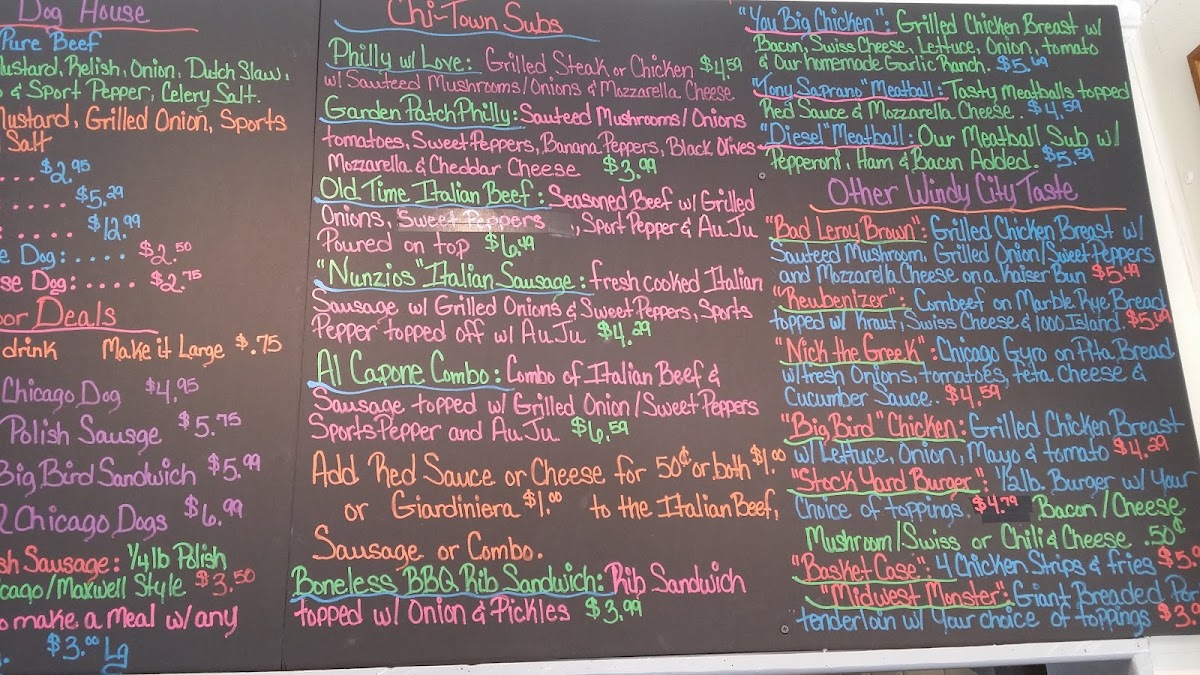 Dog House
Pure Beef
Mustard, Relish, Onion, Dutch Slaw,
& Sport Pepper, Celery Salt.
Mustard, Grilled Onion, Sports
Salt
.... $2.95
.... $5.29
.... $12.99
Dog: .... $2.50
Dog: .... $2.75
Deals
drink Make it Large $.75
Chicago Dog $4.95
Polish Sausge $5.75
Big Bird Sandwich $5.99
2 Chicago Dogs $6.99
Sausage: 1/4 lb Polish
/Maxwell Style $3.50
make a Meal w/ any
$3.00 Lg
Chi-Town Subs
Philly w/ Love: Grilled Steak or Chicken $4.59
w/ Sauteed Mushrooms/Onions & Mozzarella Cheese
Garden Patch Philly: Sauteed Mushrooms/Onions
tomatoes, Sweet Peppers, Banana Peppers, Black Olives
Mozzarella & Cheddar Cheese $3.99
Old Time Italian Beef: Seasoned Beef w/ Grilled
Onions, Sweet Peppers, Sport Pepper & Au Ju
Poured on top $6.49
"Nunzios" Italian Sausage: fresh cooked Italian
Sausage w/ Grilled Onions & Sweet Peppers, Sports
Pepper topped off w/ Au Ju $4.29
Al Capone Combo: Combo of Italian Beef &
Sausage topped w/ Grilled Onion/Sweet Peppers
Sports Pepper and Au Ju. $6.59
Add Red Sauce or Cheese for 50¢ or both $1.00
or Giardiniera $1.00 to the Italian Beef,
Sausage or Combo.
Boneless BBQ Rib Sandwich: Rib Sandwich
topped w/ Onion & Pickles $3.99
"You Big Chicken": Grilled Chicken Breast w/
Bacon, Swiss Cheese, Lettuce, Onion, tomato
& Our homemade Garlic Ranch. $5.69
"Tony Saprano" Meatball: Tasty meatballs topped
Red Sauce & Mozzarella Cheese. $4.59
"Diesel" Meatball: Our Meatball Sub w/
Pepperoni, Ham & Bacon Added. $5.59
Other Windy City Taste
"Bad Leroy Brown": Grilled Chicken Breast w/
Sauteed Mushroom, Grilled Onion/Sweet Peppers
and Mozzarella Cheese on a Kaiser Bun $5.49
"Reubenizer": Cornbeef on Marble Rye Bread
topped w/ Kraut, Swiss Cheese & 1000 Island. $5.69
"Nick the Greek": Chicago Gyro on Pita Bread
w/ fresh Onions, tomatoes, feta Cheese &
Cucumber Sauce. $4.59
"Big Bird" Chicken: Grilled Chicken Breast
w/ Lettuce, Onion, Mayo & tomato $4.29
"Stock Yard Burger": 1/2 lb. Burger w/ Your
Choice of toppings. $4.79 Bacon/Cheese
Mushroom/Swiss or Chili & Cheese .50¢
"Basket Case": 4 Chicken Strips & fries $5.
"Midwest Monster": Giant Breaded Por
tenderloin w/ Your choice of toppings $3.